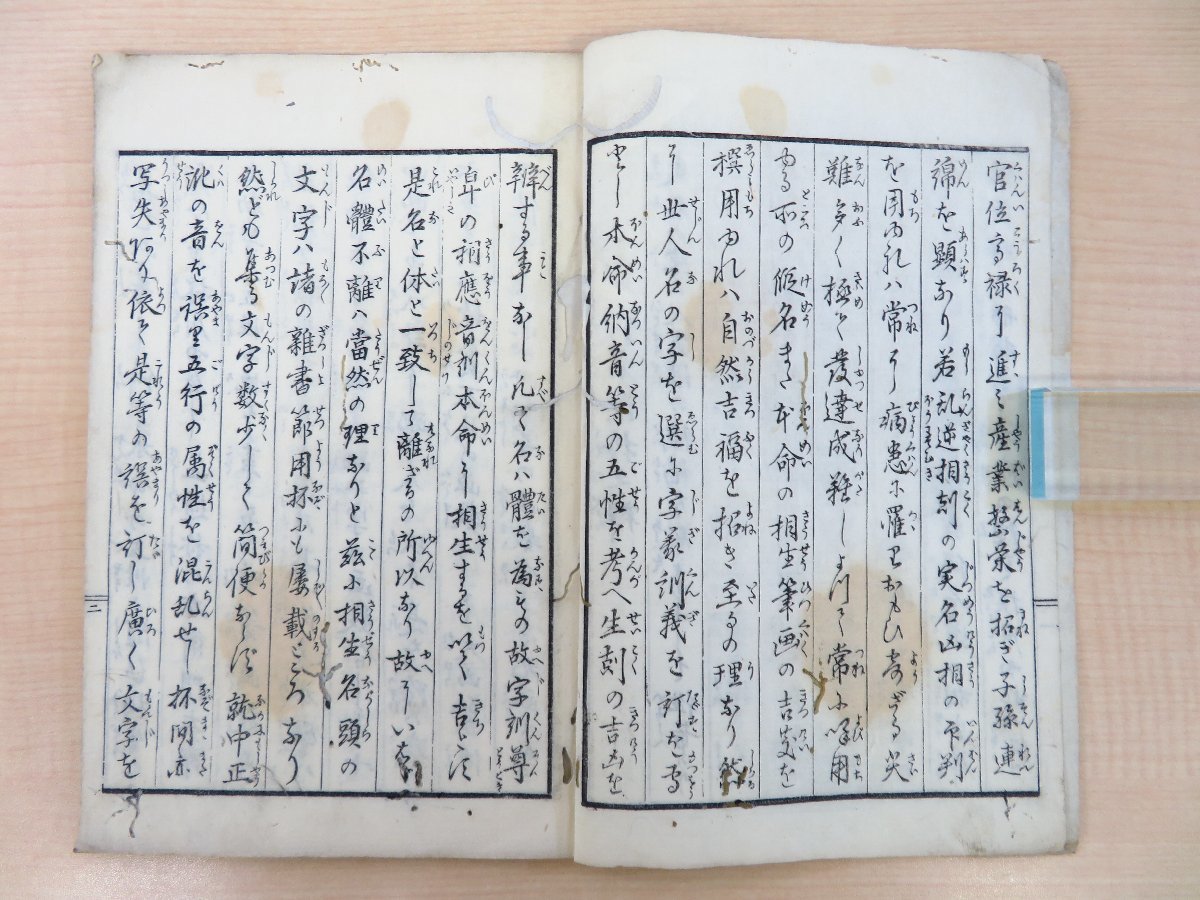 官位高禄に進み産業繁栄を招ぎ子孫連
綿を顕なり若乱逆相剋の実名凶相の印判
を用ゆれハ常に病患に罹りおもひよらざる災
難多く極て發達成難しよつて常に呼用
ゆる所の假名また本命の相生筆画の吉凶を
撰用ゆれハ自然吉福を招き至るの理なり然
に世人名の字を選に字義訓義を訂を
し本命納音等の五性を考へ生剋の吉凶を
辨する事なし凡て名ハ體を為すの故字訓尊
卑の相應音訓本命に相生するを以て吉とす
是名と体と一致して離ざるの所以なり故にいはく
名體不離ハ當然の理なりと茲に相生名頭の
文字ハ諸の雜書節用杯にも屡載ところなり
然ども集る文字数少して簡便ならず就中正
訛の音を誤り五行の属性を混乱せし杯間亦
写失阿り依て是等の誤を訂し廣く文字を
二